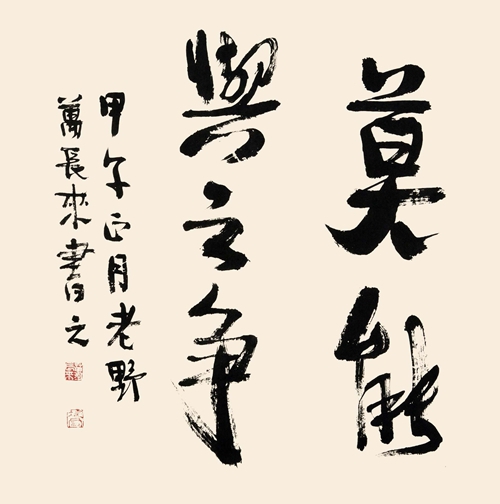 莫能
與之争
甲午正月老野
萬長來書之